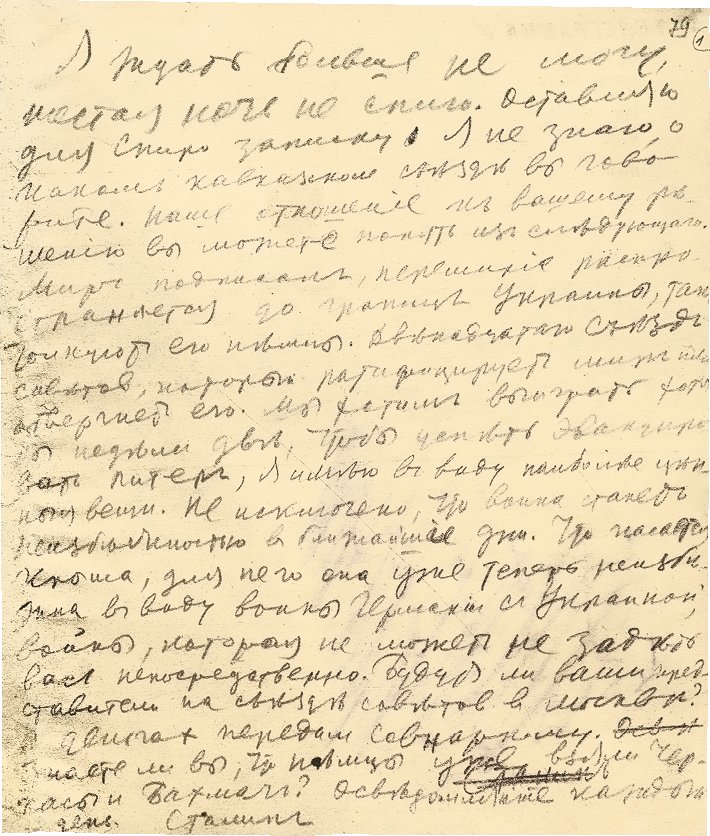 79
1
Я ждать больше не могу,
шестая ночь не сплю. Оставляю
для Спиро записку. Я не знаю, о
каком кавказском съѣздѣ вы гово-
рите. Наше отношеніе къ вашему рѣ-
шенію вы можете понять изъ слѣдующаго.
Миръ подписанъ, перемиріе распро-
страняется до границъ Украины, так
толкуют его нѣмцы. Двѣнадцатаго съѣздъ
совѣтов, который ратифицируетъ миръ или
отвергнет его. Мы хотимъ выиграть хотя
бы недѣли двѣ, чтобы успѣть эвакуиро-
вать Питеръ, я имѣю в виду наиболѣе цѣн-
ныя вещи. Не исключено, что война станетъ
неизбѣжностью в ближайшіе дни. Что касается
юга, для него она уже теперь неизбѣ-
жна в виду войны Германіи с Украиной,
войны, которая не может не задѣть
вас непосредственно. Будут ли ваши пред-
ставители на съѣздѣ совѣтов в Москвѣ?
передам Совнаркому.
знаете ли вы, что нѣмцы уже взяли Чер-
касы и Бахмачъ? Освѣдомляйте каждый
день. Сталинъ